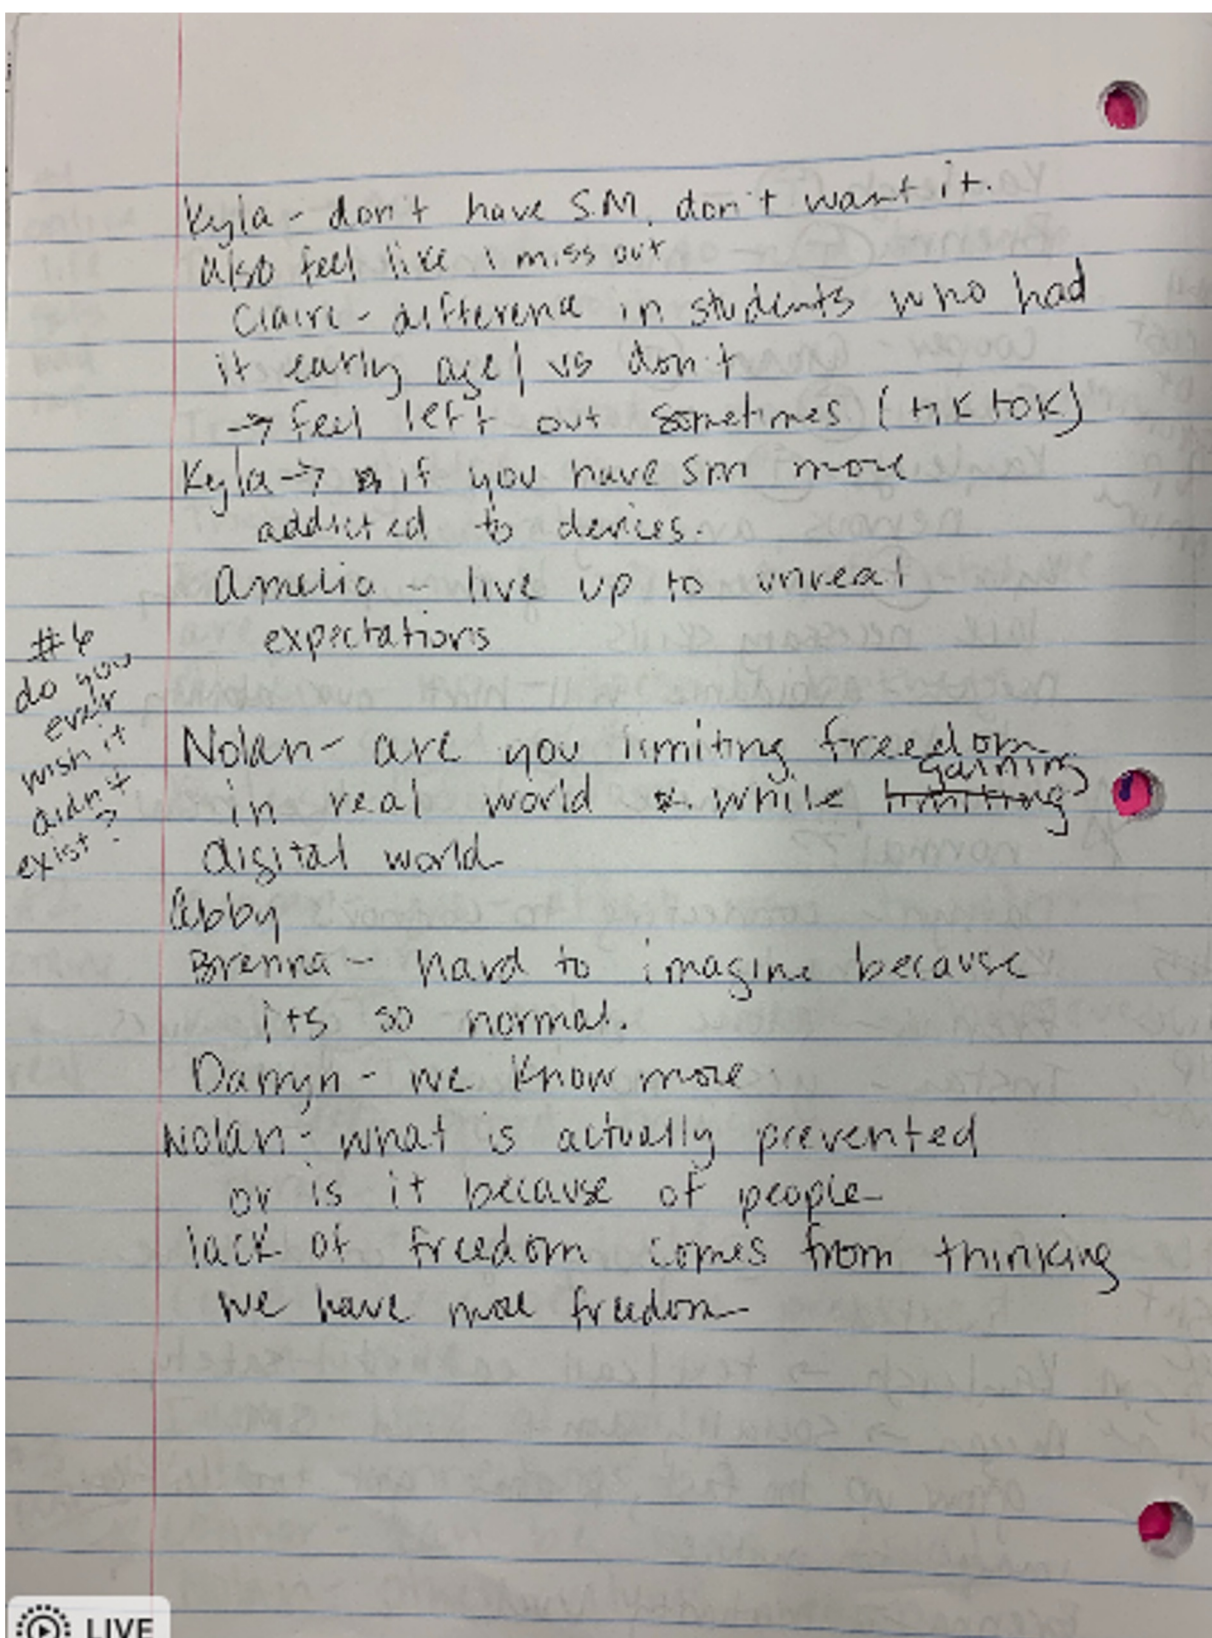 Kyla - don't have S.M, don't want it.
also feel like i miss out
Claire - difference in students who had
it early age/ vs don't
→ feel left out sometimes (tiktok)
Kyla → if you have sm more
addicted to devices.
Amelia - live up to unreal
expectations
#6
do you
ever
wish it
didn't
exist?
Nolan - are you limiting freedom
gaining
in real world while limiting
digital world
Abby
Brenna - hard to imagine because
its so normal.
Darryn - we know more
Nolan - what is actually prevented
or is it because of people
lack of freedom comes from thinking
we have more freedom
LIVE